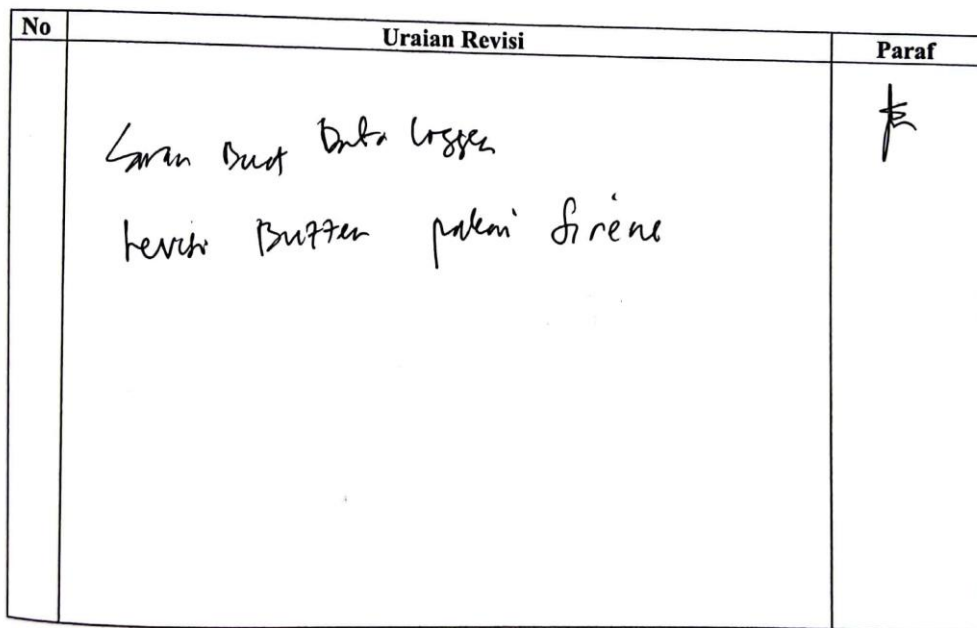 No Uraian Revisi Paraf
Saran Buat Data Logger
revisi Buzzer pakai Sirene